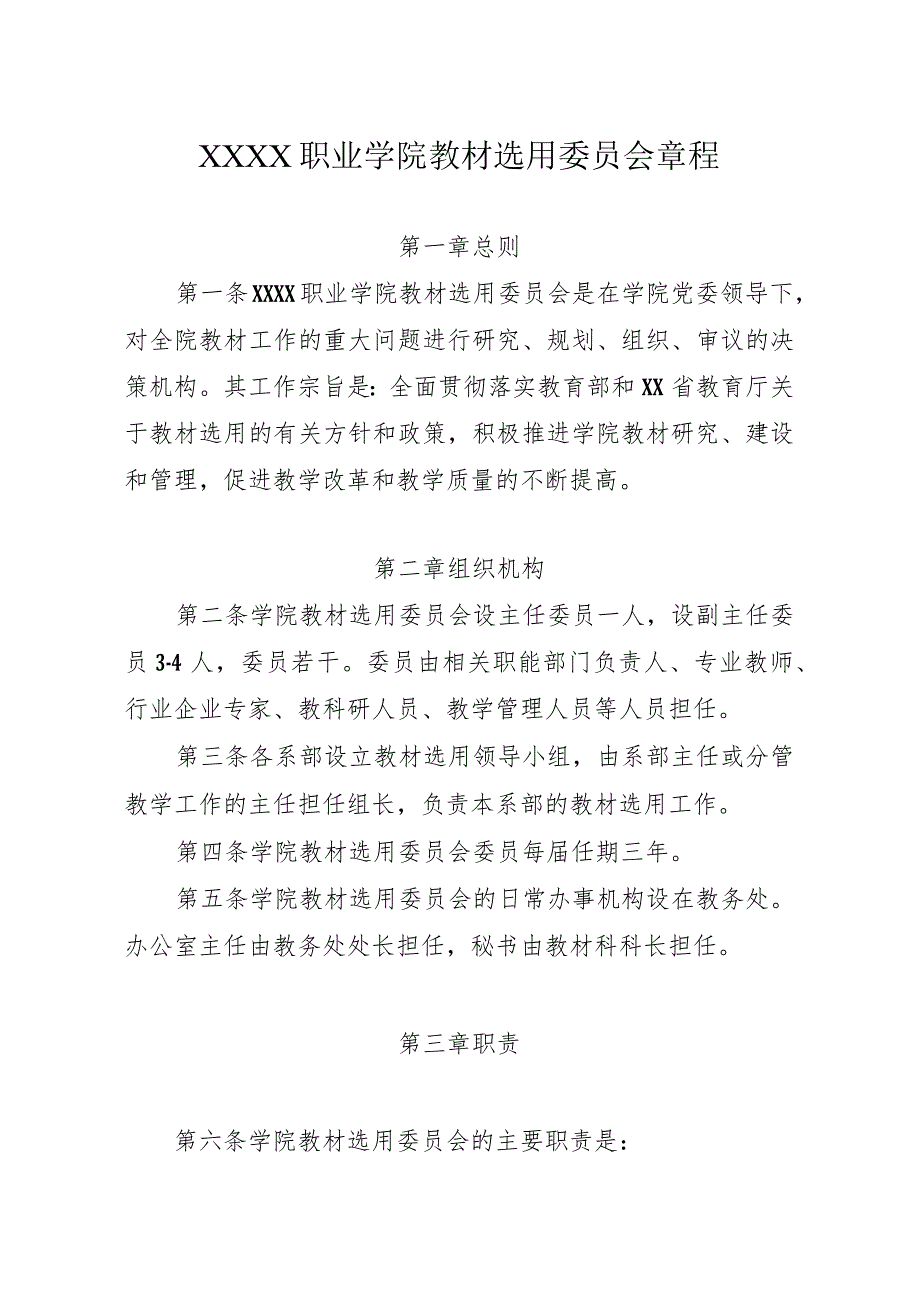 XXXX 职业学院教材选用委员会章程
第一章总则
第一条 XXXX 职业学院教材选用委员会是在学院党委领导下，
对全院教材工作的重大问题进行研究、规划、组织、审议的决
策机构。其工作宗旨是：全面贯彻落实教育部和 XX 省教育厅关
于教材选用的有关方针和政策，积极推进学院教材研究、建设
和管理，促进教学改革和教学质量的不断提高。
第二章组织机构
第二条学院教材选用委员会设主任委员一人，设副主任委
员 3-4 人，委员若干。委员由相关职能部门负责人、专业教师、
行业企业专家、教科研人员、教学管理人员等人员担任。
第三条各系部设立教材选用领导小组，由系部主任或分管
教学工作的主任担任组长，负责本系部的教材选用工作。
第四条学院教材选用委员会委员每届任期三年。
第五条学院教材选用委员会的日常办事机构设在教务处。
办公室主任由教务处处长担任，秘书由教材科科长担任。
第三章职责
第六条学院教材选用委员会的主要职责是：